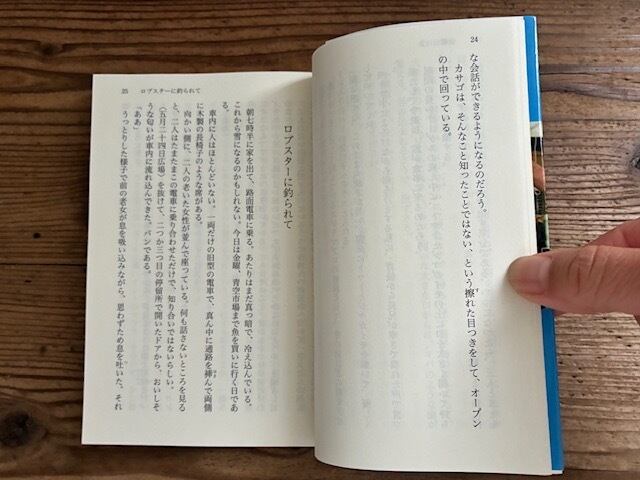 24
な会話ができるようになるのだろう。
カサゴは、そんなこと知ったことではない、という擦れた目つきをして、オーブン
の中で回っている。
25 ロブスターに釣られて
ロブスターに釣られて
朝七時半に家を出て、路面電車に乗る。あたりはまだ真っ暗で、冷え込んでいる。
これから雪になるのかもしれない。今日は金曜、青空市場まで魚を買いに行く日であ
る。
車内に人はほとんどいない。一両だけの旧型の電車で、真ん中に通路を挟んで両側
に木製の長椅子のような席がある。
向かい側に、二人の老いた女性が並んで座っている。何も話さないところを見る
と、二人はたまたまこの電車に乗り合わせただけで、知り合いではないらしい。
〈五月二十四日広場〉を抜けて、二つか三つ目の停留所で開いたドアから、おいしそ
うな匂いが車内に流れ込んできた。パンである。
「ああ」
うっとりした様子で前の老女が息を吸い込みながら、思わずため息を吐いた。それ